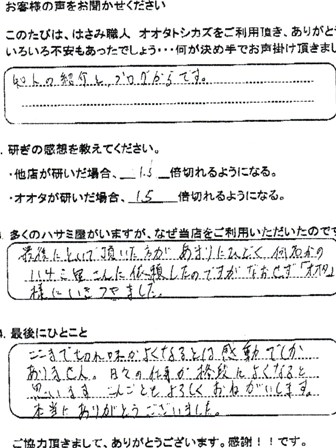 お客様の声をお聞かせください
このたびは、はさみ職人 オオタトシカズをご利用頂き、ありがと
いろいろ不安もあったでしょう・・・何が決め手でお声掛け頂きま
知人の紹介と、ブログからです。
. 研ぎの感想を教えてください。
・他店が研いだ場合、 1.5 倍切れるようになる。
・オオタが研いだ場合、 15 倍切れるようになる。
多くのハサミ屋がいますが、なぜ当店をご利用いただいたのです
最後にといで頂いた方があまりにひどく 何名かの
ハサミ屋さんに依頼したのですが なおらず「オオタ」
様にいきつきました。
4. 最後にひとこと
ここまで切れ味がよくなるとは感動でしか
ありません。日々の仕事が格段によくなると
思います こんごともよろしくおねがいします。
本当にありがとうございました。
ご協力頂きまして、ありがとうございます。感謝！！です。